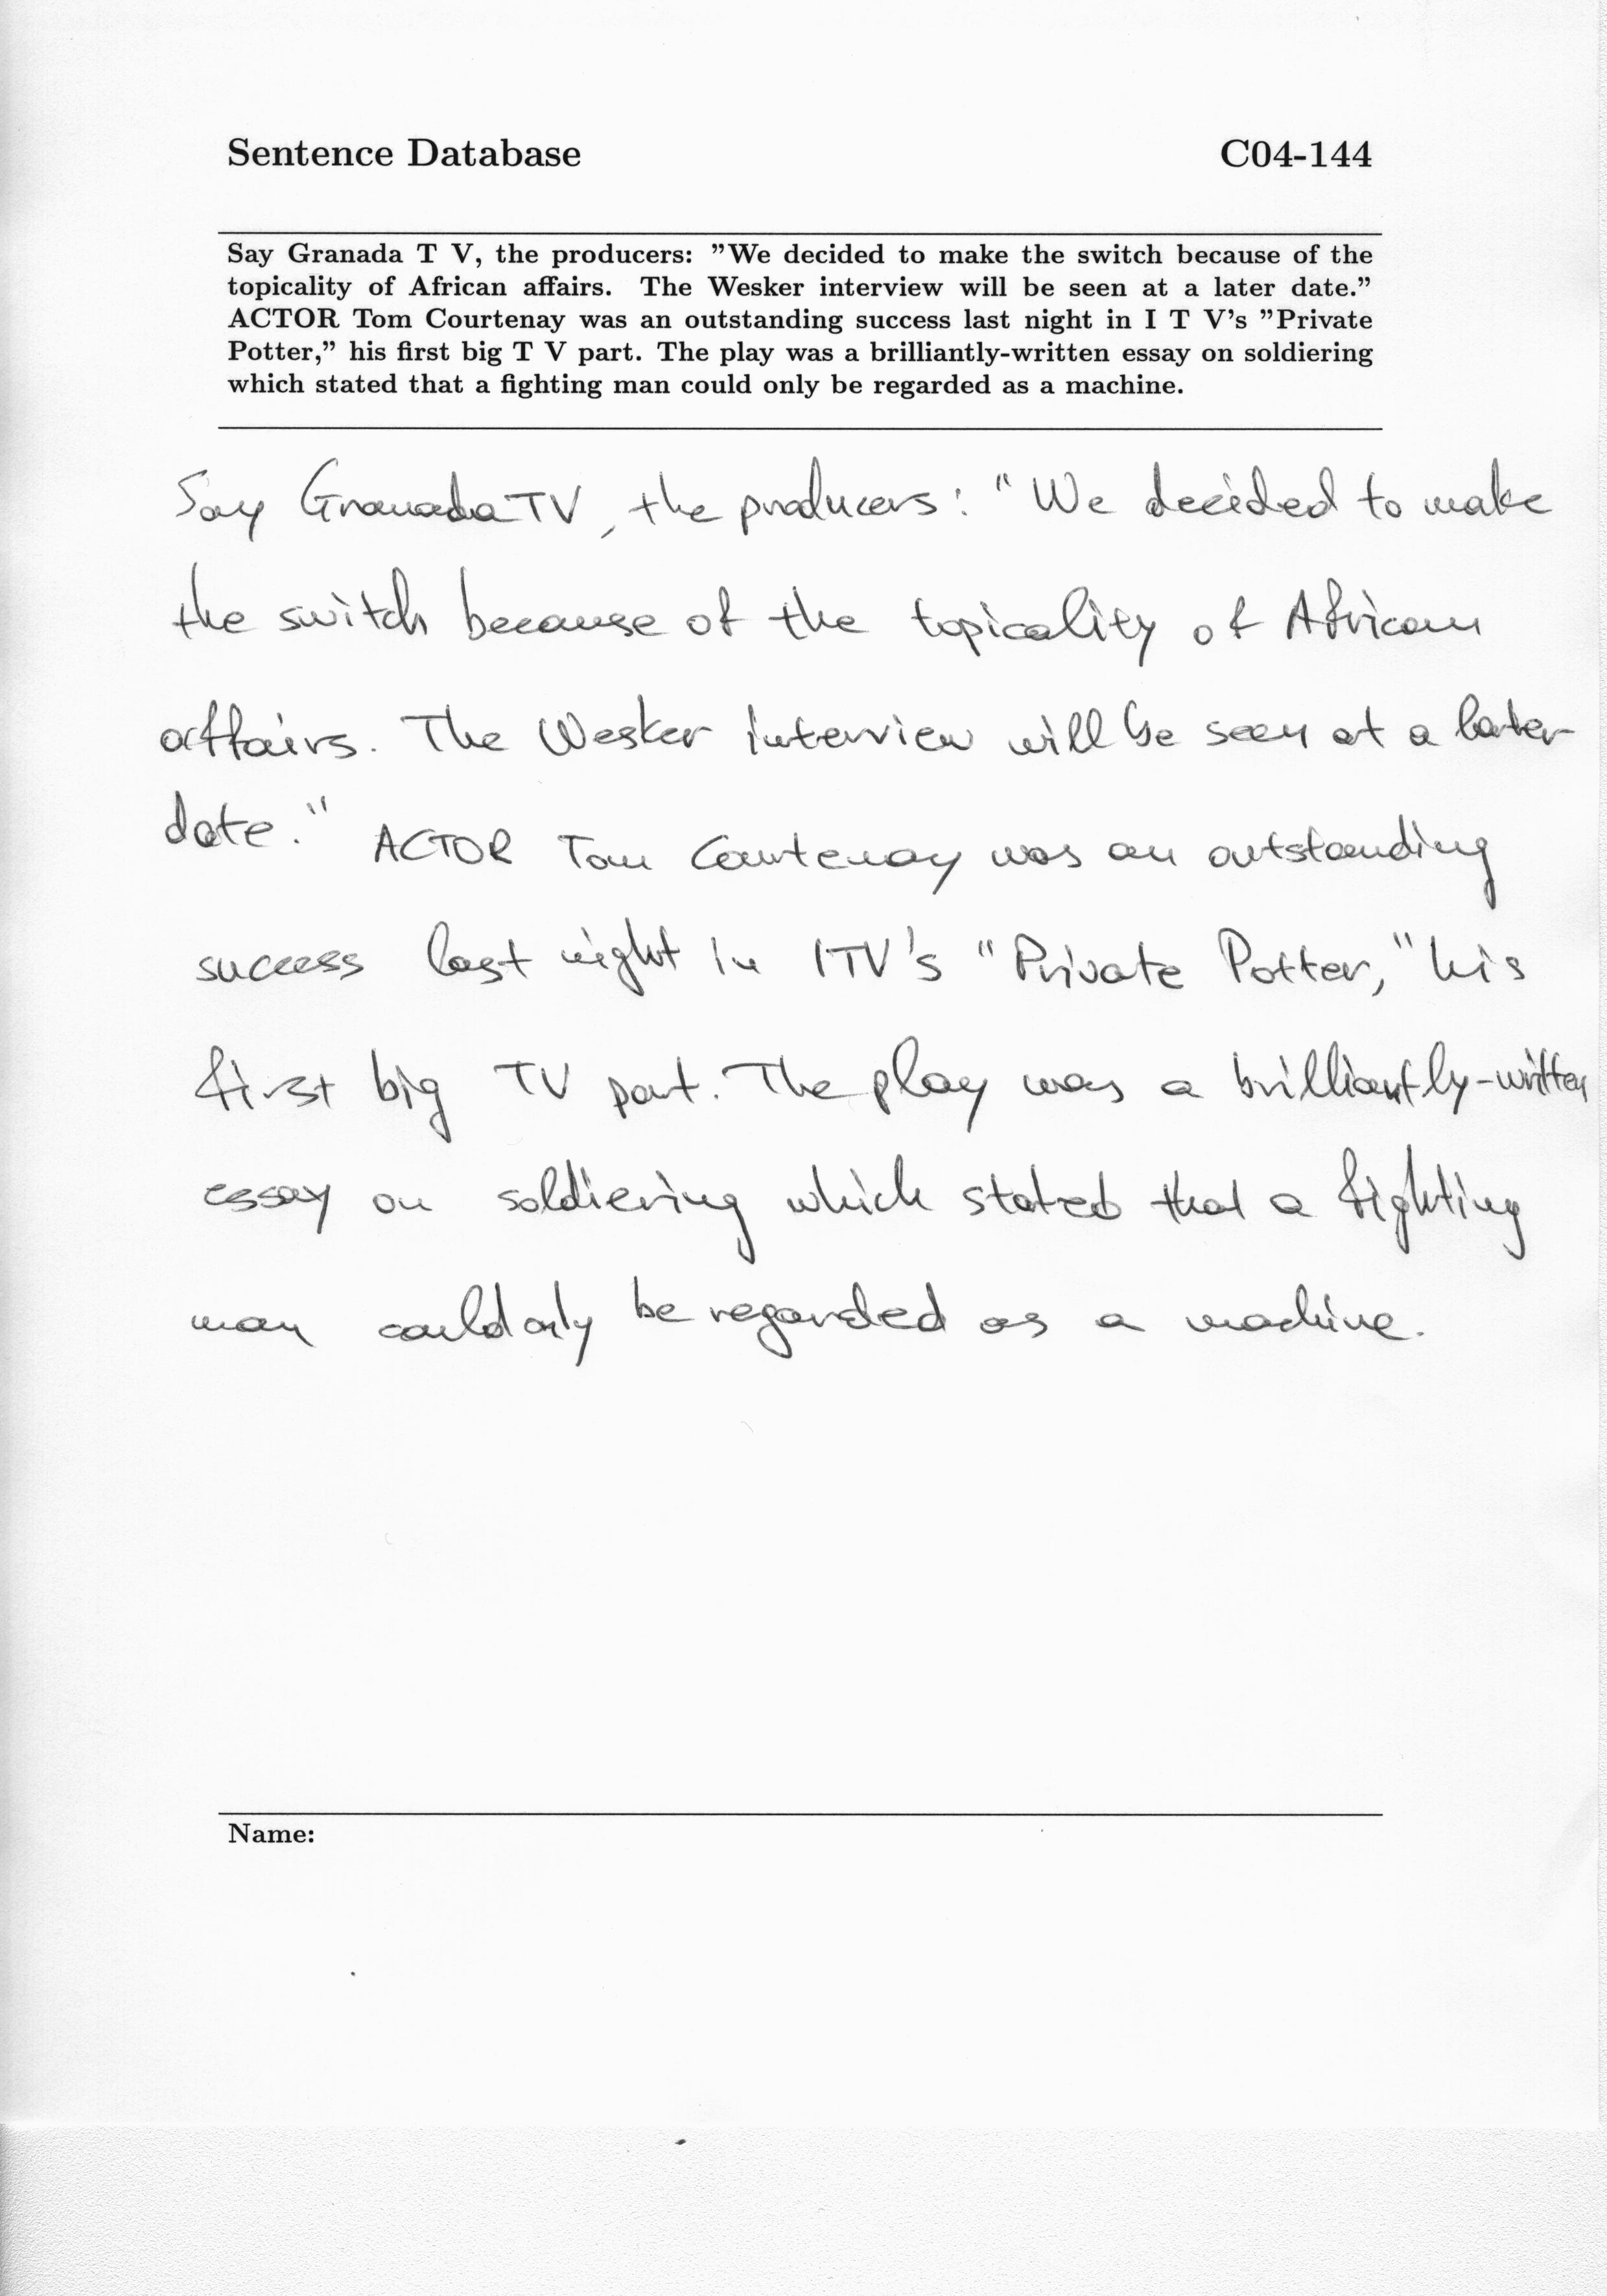 Sentence Database C04-144
Say Granada T V, the producers: ”We decided to make the switch because of the
topicality of African affairs. The Wesker interview will be seen at a later date.”
ACTOR Tom Courtenay was an outstanding success last night in I T V's ”Private
Potter,” his first big T V part. The play was a brilliantly-written essay on soldiering
which stated that a fighting man could only be regarded as a machine.
Say Granada TV, the producers: "We decided to make
the switch because of the topicality of African
affairs. The Wesker interview will be seen at a later
date." ACTOR Tom Courtenay was an outstanding
success last night in ITV's "Private Potter," his
first big TV part. The play was a brilliantly-written
essay on soldiering which stated that a fighting
man could only be regarded as a machine.
Name: